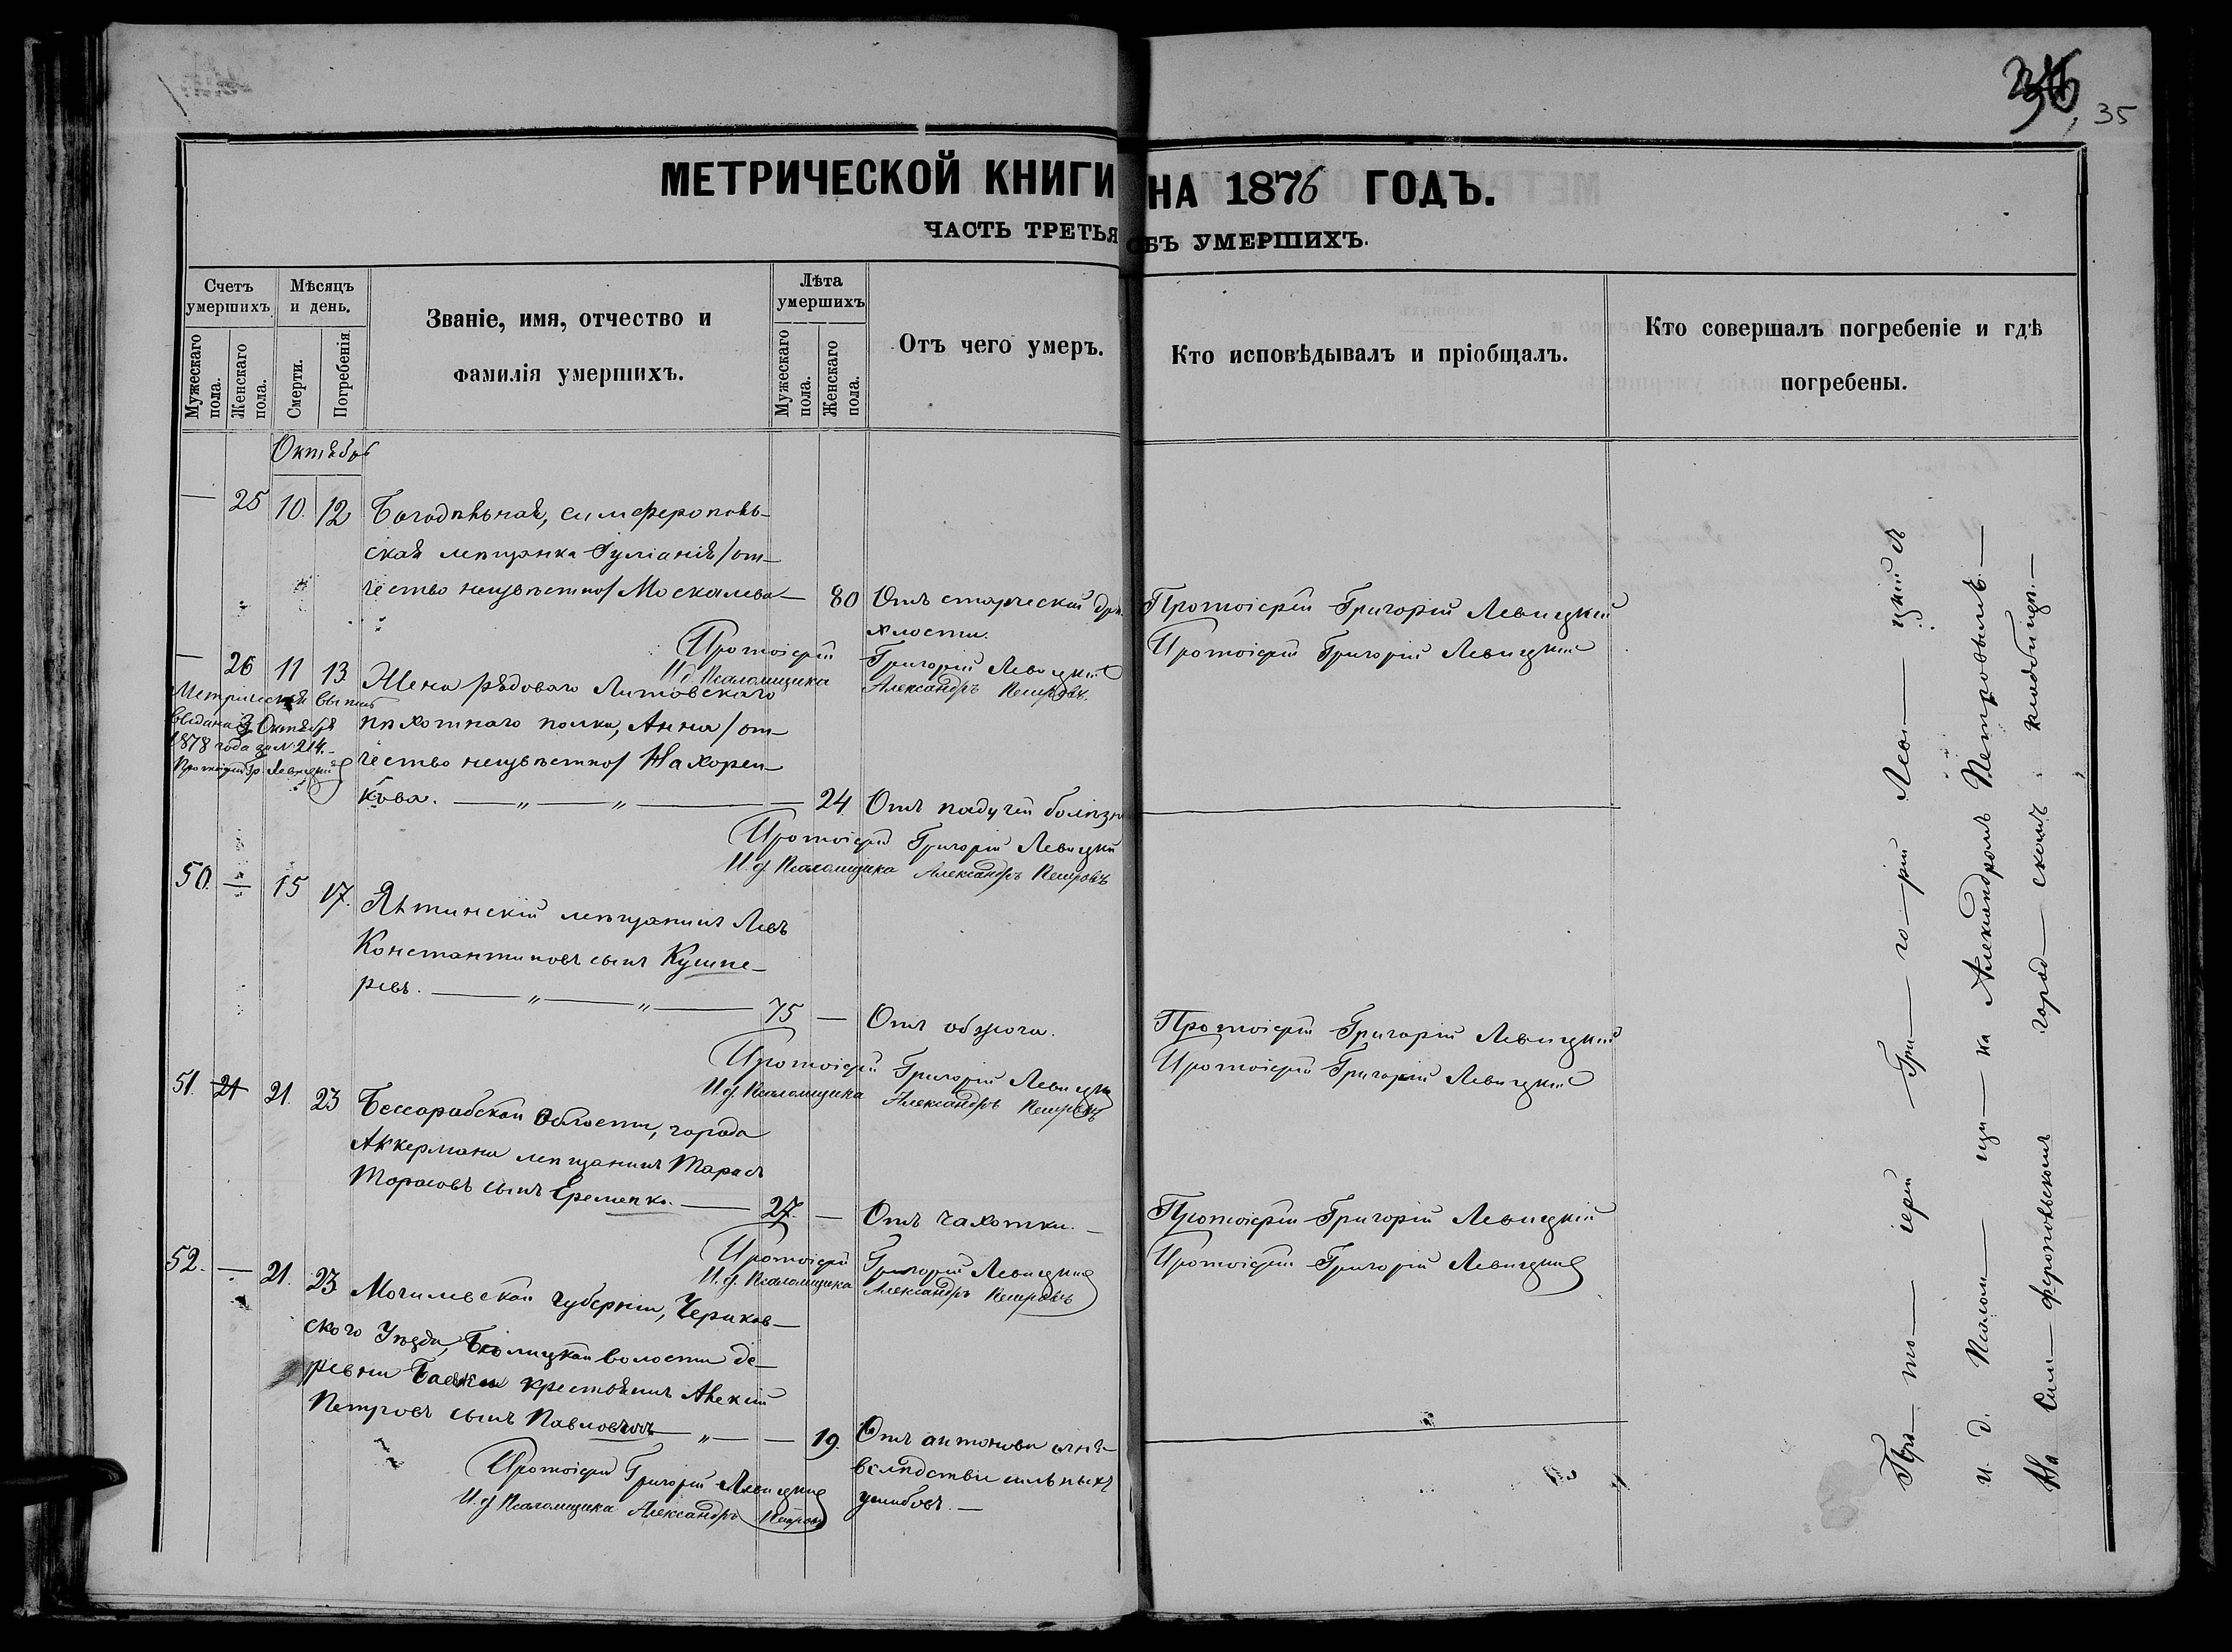 35
МЕТРИЧЕСКОЙ КНИГИ НА 1876 ГОДЪ.
ЧАСТЬ ТРЕТЬЯ ОБЪ УМЕРШИХЪ.
Счетъ умершихъ.
Мужескаго пола.
Женскаго пола.
Мѣсяцъ и день.
Смерти.
Погребенія
Званіе, имя, отчество и
фамилія умершихъ.
Лѣта умершихъ
Мужескаго пола.
Женскаго пола.
Отъ чего умеръ.
Кто исповѣдывалъ и пріобщалъ.
Кто совершалъ погребеніе и гдѣ
погребены.
Октябрь
— 25 10. 12 Богодѣльная, симферополь-
ская мещанка Іуліанія /от-
чество неизвѣстно/ Москалева — 80 Отъ старческой дря
хлости.
Протоіерей Григорій Левицкій
Протоіерей Григорій Левицкій
Протоіерей Григорій Левицкій
И. д. Псаломщика Александръ Петровъ.
— 26 11 13 Жена рядоваго Литовскаго
пѣхотнаго полка, Анна /от-
чество неизвѣстно/ Нахорен-
кова. — „ — „ — — 24 Отъ падучей болѣзн
Метрическая выпись
выдана 3 Октября
1878 года за № 214.
Протоіерей Гр. Левицкій
Протоіерей Григорій Левицкій
И. д. Псаломщика Александръ Петровъ
50. — 15 17. Ялтинскій мещанинъ Левъ
Константиновъ сынъ Кушне-
ревъ. — „ — „ — 75 — Отъ обжога.
Протоіерей Григорій Левицкій
Протоіерей Григорій Левицкій
Протоіерей Григорій Левицкій
И. д. Псаломщика Александръ Петровъ
51. 21 21. 23 Бессарабской Области, города
Аккермана мещанинъ Тарасъ
Тарасовъ сынъ Еременко. — 27. — Отъ чахотки. —
Протоіерей Григорій Левицкій
Протоіерей Григорій Левицкій
Протоіерей Григорій Левицкій
И. д. Псаломщика Александръ Петровъ
52. — 21. 23 Могилевской губерніи, Чериков-
ского Уѣзда, волости де-
ревни крестьянинъ
Петровъ сынъ Павловъ — „ — — 19. Отъ антонова огня
вслѣдствіе сильныхъ
ушибовъ. —
Протоіерей Григорій Левицкій
И. д. Псаломщика Александръ Петровъ
Про — то — іерей Гри — го — рій Леви — цкій съ
и. д. Псалом — щи — ка Александромъ Петровымъ. —
На Сим — феропольскомъ город — скомъ кладбищѣ. —